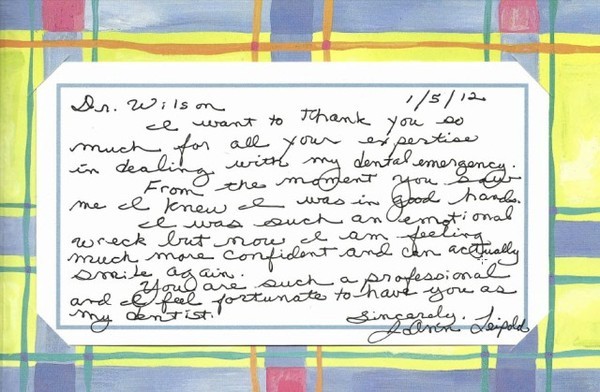 Dr. Wilson 1/5/12
I want to thank you so
much for all your expertise
in dealing with my dental emergency.
From the moment you saw
me I knew I was in good hands.
I was such an emotional
wreck but now I am feeling
much more confident and can actually
smile again.
You are such a professional
and I feel fortunate to have you as
my dentist.
Sincerely,
Leipold